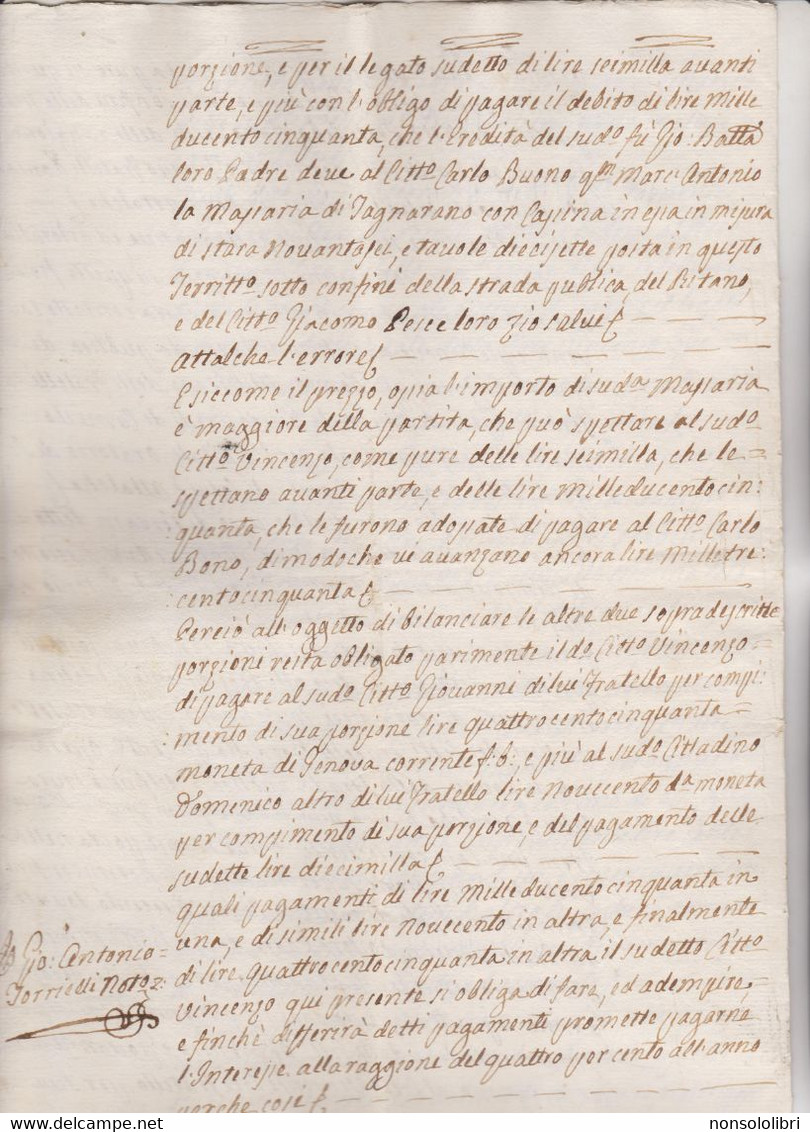 porzione, e per il legato sudetto di lire seimilla avanti
parte, e più con l'obligo di pagare il debito di lire mille
ducento cinquanta, che l'Eredità del sud.o fù Gio: Batta
loro Padre deve al Citt.o Carlo Buono q.m Marc'Antonio
la Massaria di Tagnarano con Cassina in essa in misura
di stara Novantasei, e tavole diecisette posta in questo
Territt.o sotto confine della strada publica, del Ritano,
e del Citt.o Giacomo Pesce loro zio salvi
attalche l'errore
E siccome il prezzo, ossia l'importo di sud.a Massaria
è maggiore della partita, che può spettare al sud.o
Citt.o Vincenzo, come pure delle lire seimilla, che le=
spettano avanti parte, e delle lire mille ducento cin:
quanta, che le furono adossate di pagare al Citt.o Carlo
Bono, di modo che vi avanzano ancora lire mille tre:
:cento cinquanta
Perciò all'oggetto di bilanciare le altre due sopradescritte
porzioni resta obligato parimente il d.o Citt.o Vincenzo=
di pagare al sud.o Citt.o Giovanni di lui Fratello per compi:
:mento di sua porzione lire quattrocento cinquanta=
moneta di Genova corrente f: b:, e più al sud.o Cittadino
Domenico altro di lui Fratello lire Novecento d.a moneta
per compimento di sua porzione, e del pagamento delle
sudette lire diecimilla
quali pagamenti di lire mille ducento cinquanta in
una, e di simili lire Novecento in altra, e finalmente
di lire quattrocento cinquanta in altra il sudetto Citt.o
Vincenzo qui presente si obliga di fare, ed adempire,=
e finchè differirà detti pagamenti promette pagarne
l'Interesse alla raggione del quattro per cento all'anno
perche così
Gio: Antonio=
Torrielli Not.o
nonsololibri